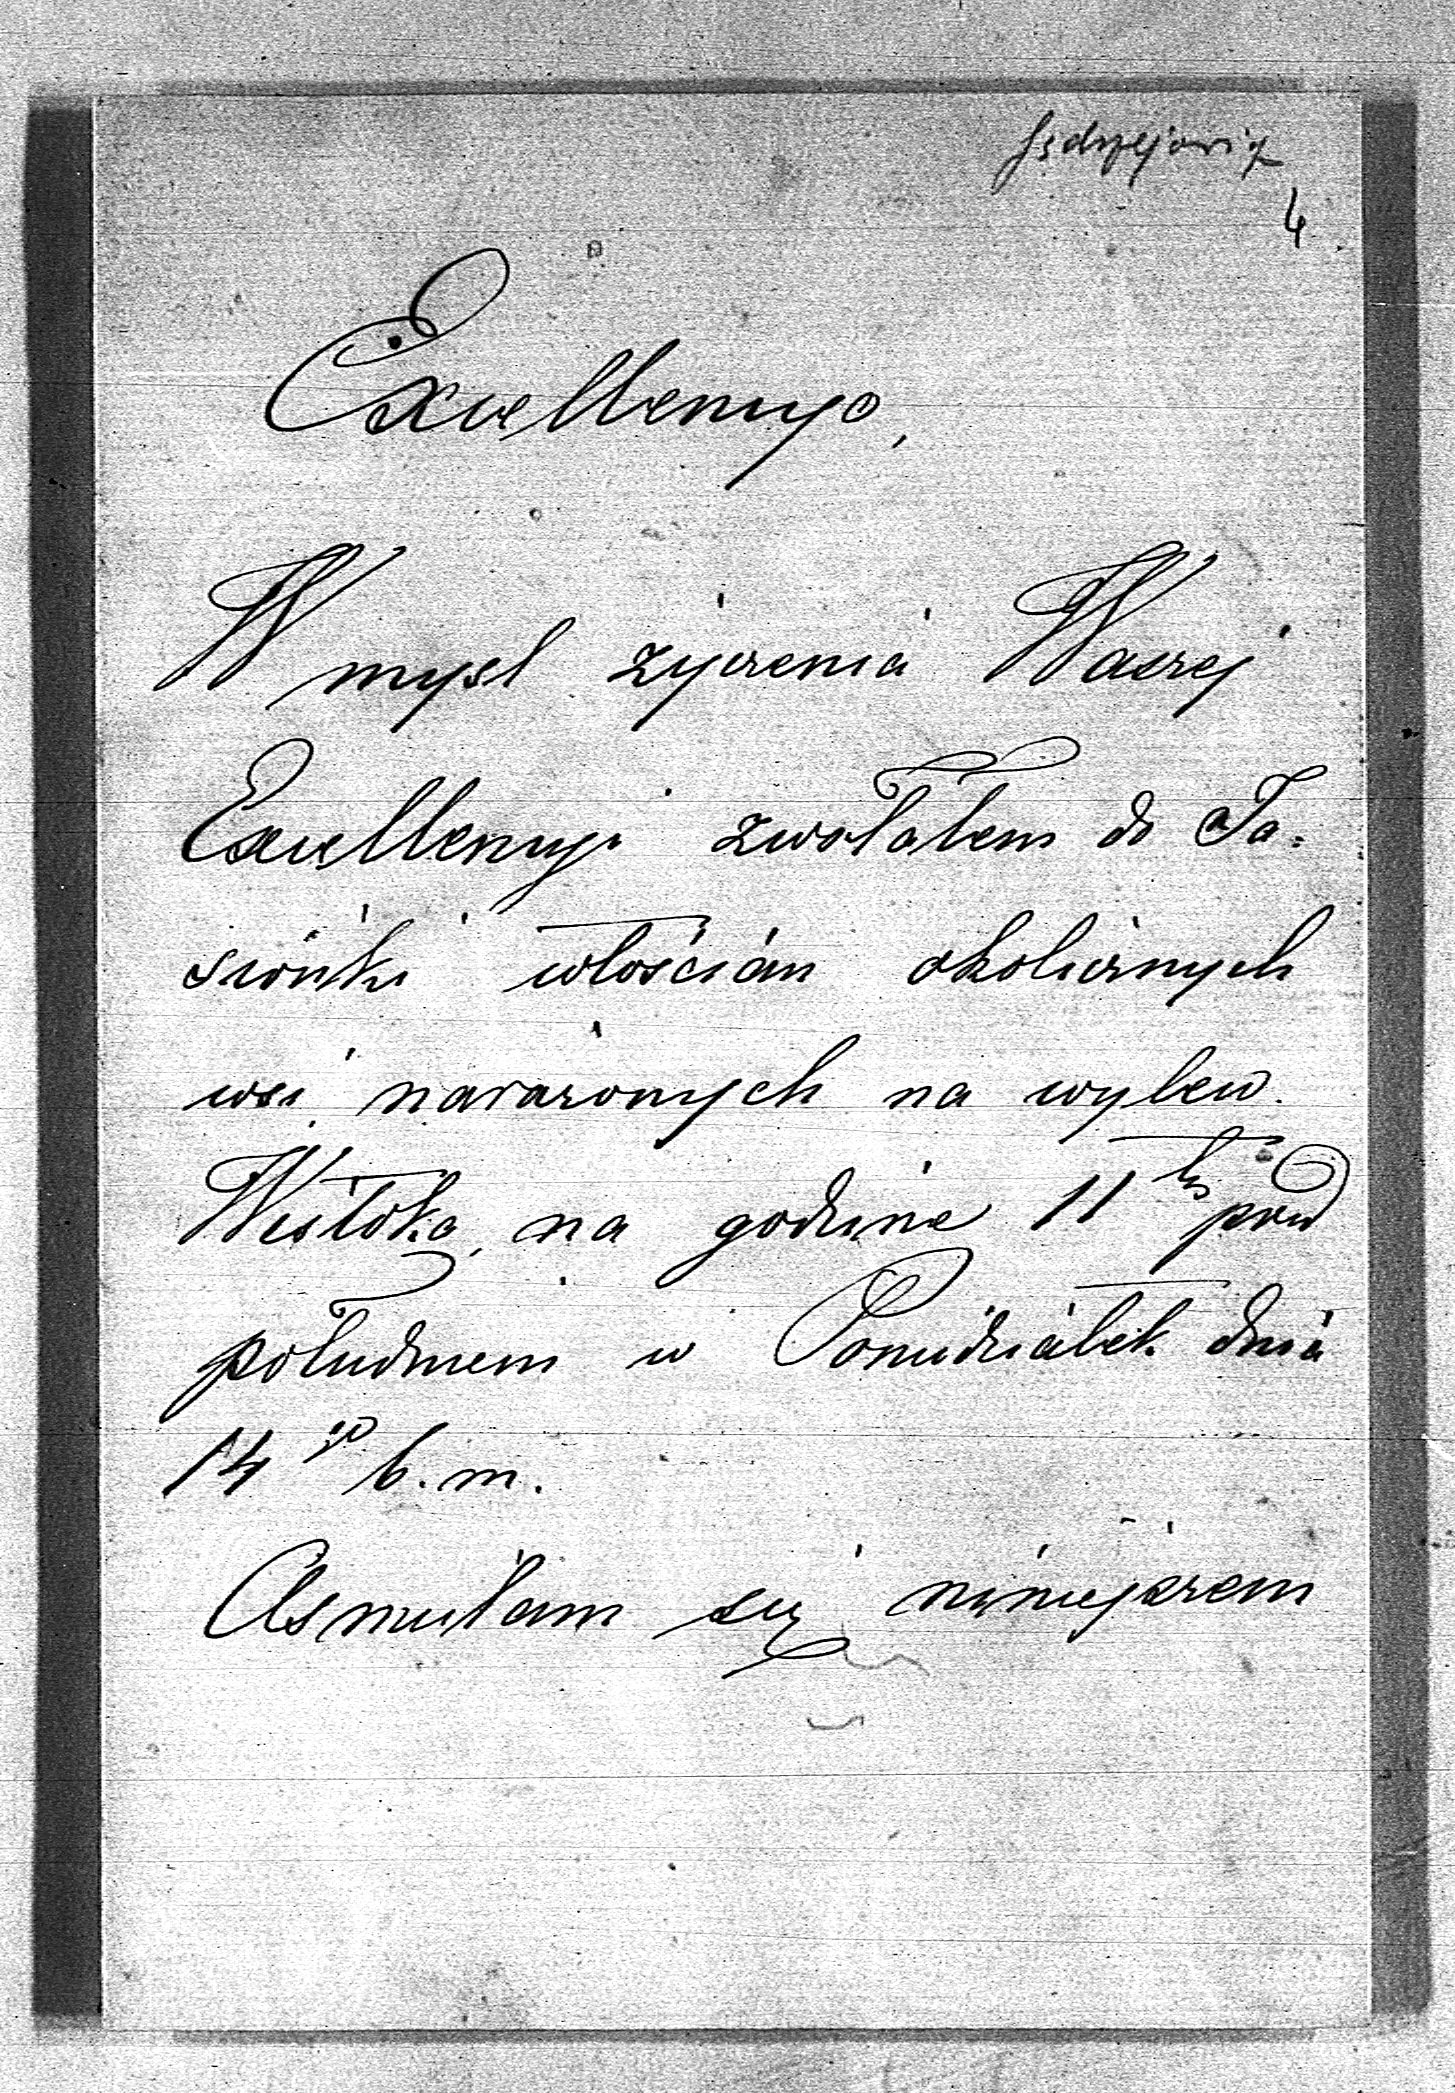 Jędrzejowicz
4
Excellencyo,
W myśl życzenia Waszej
Excellencyi zwołałem do Ja-
sionki włościan okolicznych
wsi narażonych na wylew
Wisłoka, na godzinę 11tą przed
południem w Poniedziałek dnia
14go b. m.
Ośmielam się niniejszem